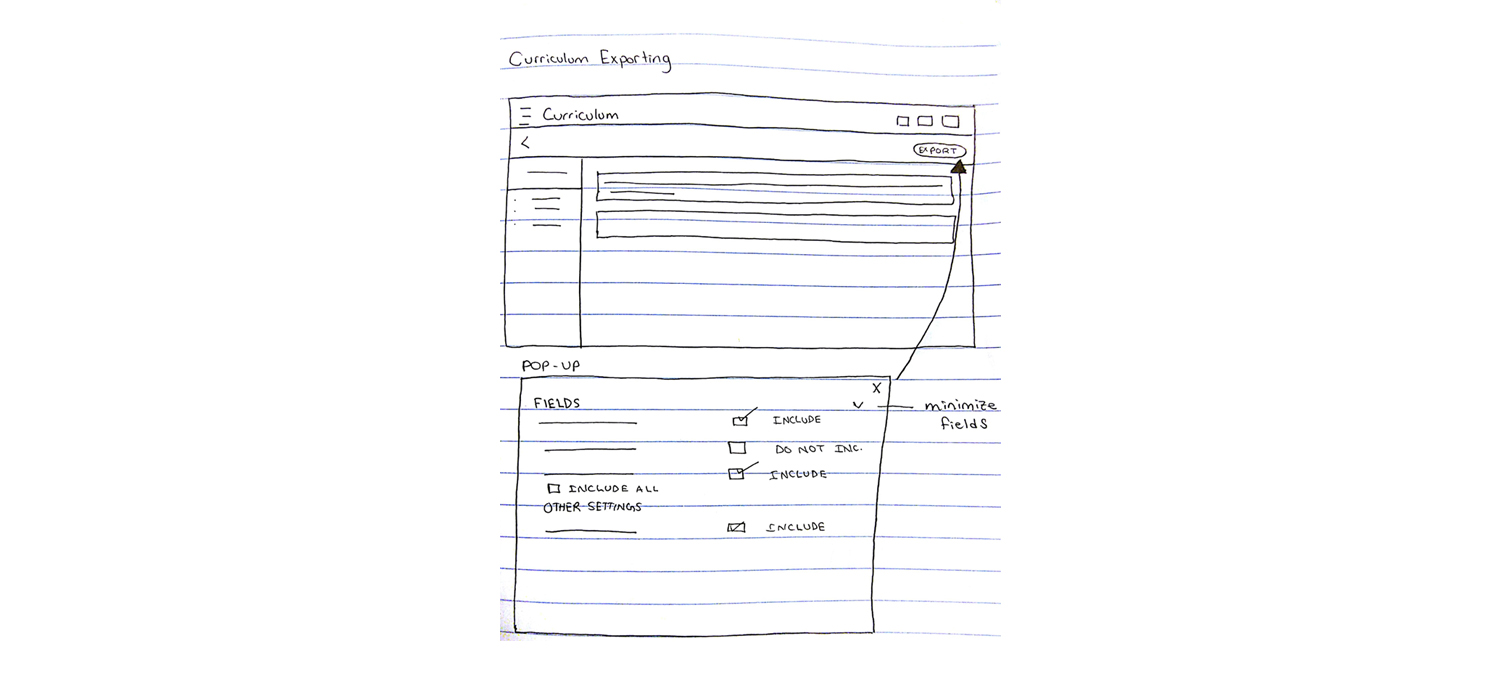 Curriculum Exporting
Curriculum
<
EXPORT
POP-UP
X
FIELDS
minimize
fields
INCLUDE
DO NOT INC.
INCLUDE
INCLUDE ALL
OTHER SETTINGS
INCLUDE